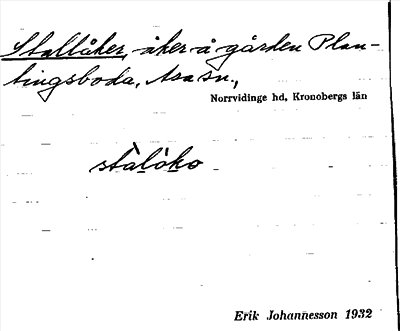 Stallåker, åker å gården Plan-
tingsboda, Asa sn.,
Norrvidinge hd, Kronobergs län
stàlòkɷ
Erik Johannesson 1932